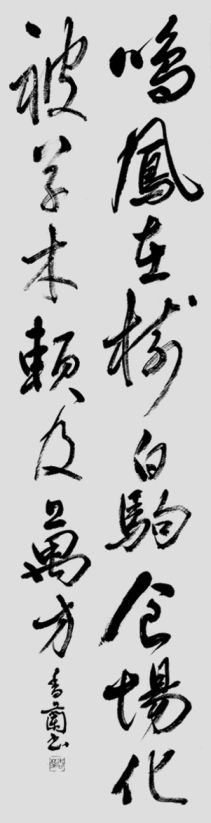 鳴鳳在樹白駒食場化
被草木賴及萬方
香蘭書